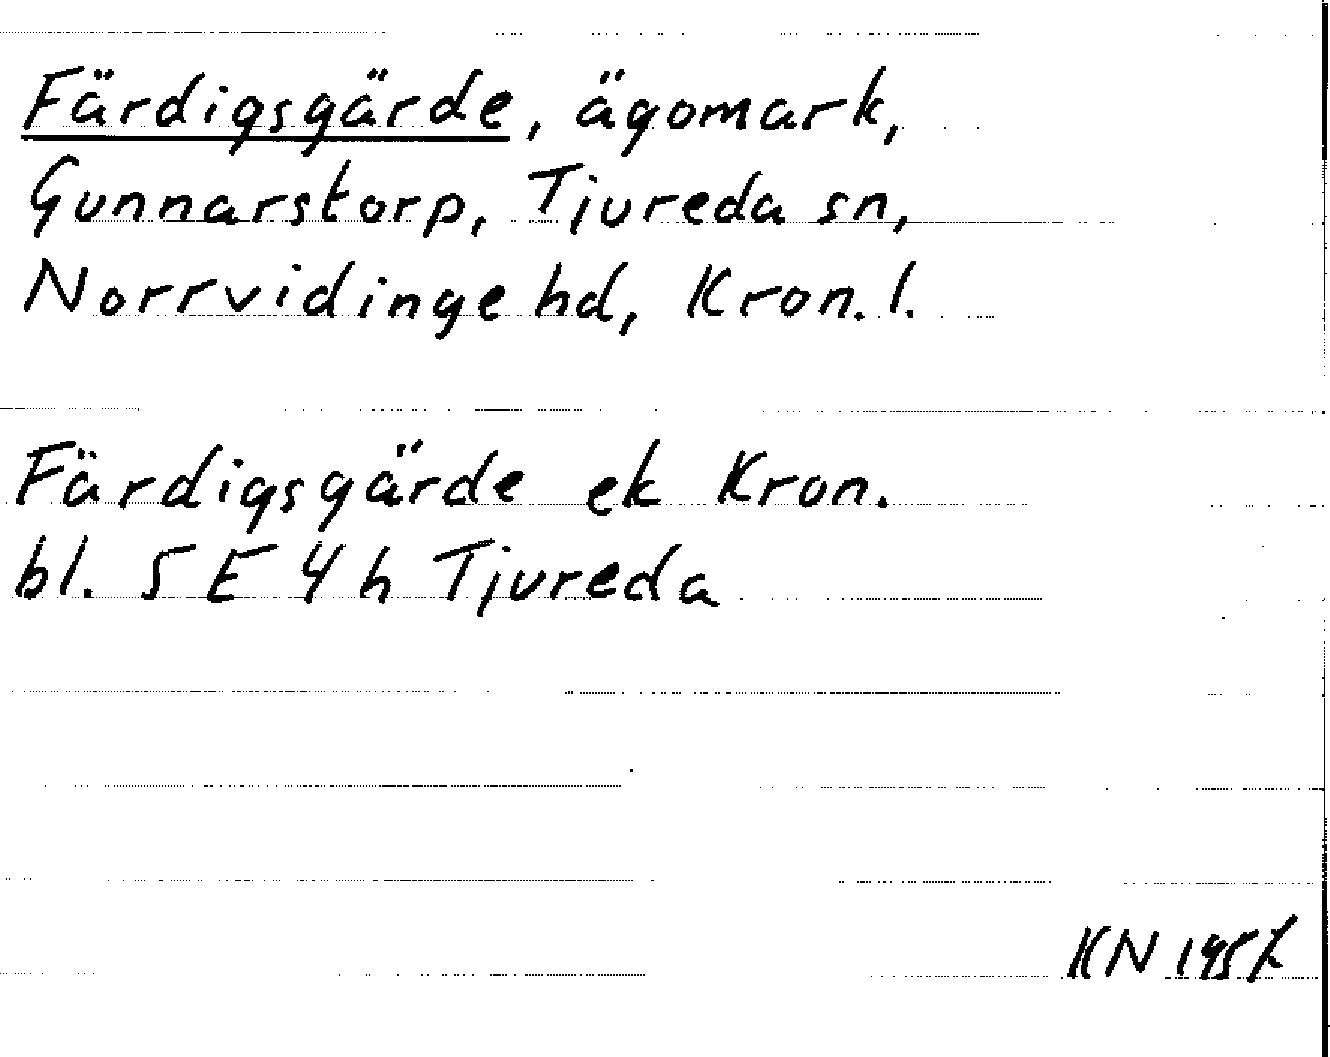 Färdigsgärde, ägomark,
Gunnarstorp, Tjureda sn,
Norrvidinge hd, Kron. l.
Färdigsgärde ek Kron.
bl. 5 E 4 h Tjureda
KN